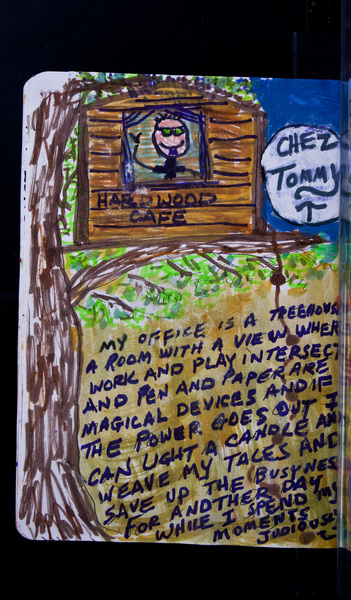 CHEZ
TOMMY
HARDWOOD
CAFE
MY OFFICE IS A TREEHOUSE
A ROOM WITH A VIEW WHERE
WORK AND PLAY INTERSECT
AND PEN AND PAPER ARE
MAGICAL DEVICES AND IF
THE POWER GOES OUT I
CAN LIGHT A CANDLE AND
WEAVE MY TALES AND
SAVE UP THE BUSYNESS
FOR ANOTHER DAY
WHILE I SPEND MY
MOMENTS
JUDIOUSLY